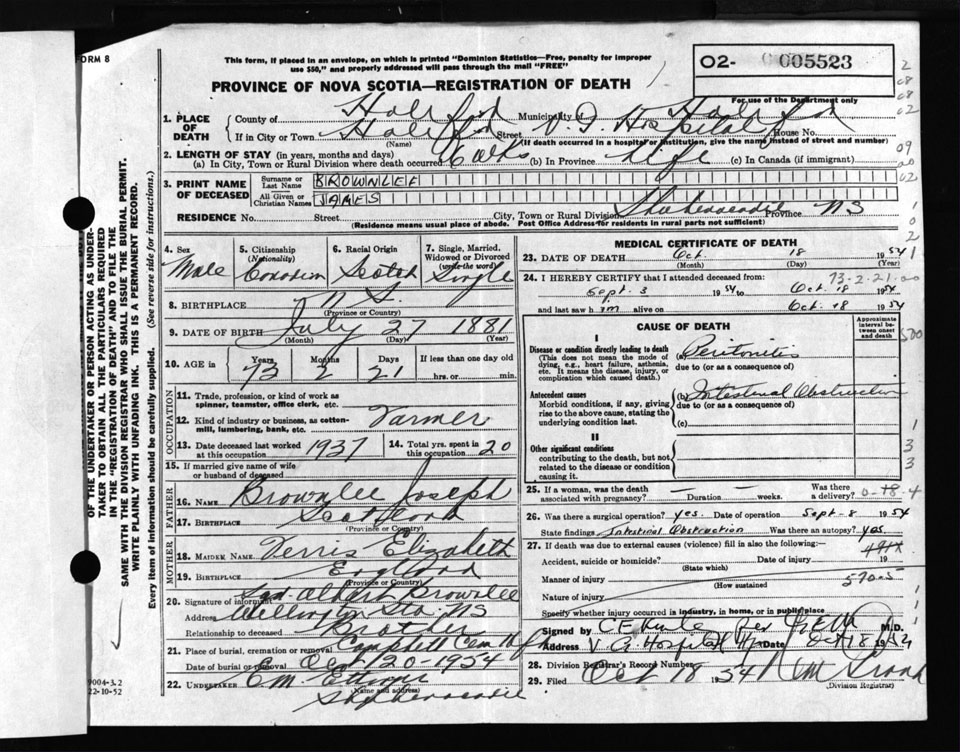 FORM 8
This form, if placed in an envelope, on which is printed "Dominion Statistics—Free, penalty for improper
use $50," and properly addressed will pass through the mail "FREE"
PROVINCE OF NOVA SCOTIA—REGISTRATION OF DEATH
O2- 005523
For use of the Department only
1. PLACE OF DEATH County of Halifax Municipality of Halifax
If in City or Town Halifax Street V. G. Hospital House No.
(Name) (If death occurred in a hospital or institution, give the name instead of street and number)
2. LENGTH OF STAY (in years, months and days)
(a) In City, Town or Rural Division where death occurred 6 wks (b) In Province life (c) In Canada (if immigrant)
3. PRINT NAME OF DECEASED Surname or Last Name BROWNLEE
All Given or Christian Names JAMES
RESIDENCE No. Street City, Town or Rural Division Shubenacadie Province NS
(Residence means usual place of abode. Post Office Address for residents in rural parts not sufficient)
4. Sex Male
5. Citizenship (Nationality) Canadian
6. Racial Origin Scotch
7. Single, Married, Widowed or Divorced (write the word) Single
8. BIRTHPLACE N S.
(Province or Country)
9. DATE OF BIRTH July 27 1881
(Month) (Day) (Year)
10. AGE in Years 73 Months 2 Days 21 If less than one day old
hrs. or min.
OCCUPATION
11. Trade, profession, or kind of work as
spinner, teamster, office clerk, etc.
12. Kind of industry or business, as cotton-
mill, lumbering, bank, etc. Farmer
13. Date deceased last worked at this occupation 1937
14. Total yrs. spent in this occupation 20
15. If married give name of wife
or husband of deceased
FATHER
16. Name Brownlee Joseph
17. Birthplace Scotland
(Province or Country)
MOTHER
18. Maiden Name Ferris Elizabeth
19. Birthplace England
(Province or Country)
20. Signature of informant Sgd. Albert Brownlee
Address Wellington Stn. NS
Relationship to deceased Brother
21. Place of burial, cremation or removal Campbell Cem
Date of burial or removal Oct 20-1954
22. Undertaker E.M. Ettinger
(Name and address)
Shubenacadie
MEDICAL CERTIFICATE OF DEATH
23. DATE OF DEATH Oct. 18 1954
(Month) (Day) (Year)
73-2-21
24. I HEREBY CERTIFY that I attended deceased from:
Sept. 3 1954 to Oct. 18 1954
and last saw him alive on Oct. 18 1954
CAUSE OF DEATH
Approximate interval between onset and death
I
Disease or condition directly leading to death (a) Peritonitis
(This does not mean the mode of dying, e.g., heart failure, asthenia, etc. It means the disease, injury, or complication which caused death.) due to (or as a consequence of)
Antecedent causes (b) Intestinal Obstruction
Morbid conditions, if any, giving rise to the above cause, stating the underlying condition last. due to (or as a consequence of)
(c)
II
Other significant conditions
contributing to the death, but not related to the disease or condition causing it.
25. If a woman, was the death associated with pregnancy? — Duration — weeks. Was there a delivery?
26. Was there a surgical operation? yes. Date of operation Sept-8 1954
State findings Intestinal Obstruction Was there an autopsy? yes
27. If death was due to external causes (violence) fill in also the following:—
Accident, suicide or homicide? Date of injury 19
(State which)
Manner of injury 570-5
(How sustained)
Nature of injury
Specify whether injury occurred in industry, in home, or in public place
Signed by M.D.
Address V. G. Hospital Hfx Date Oct 18 1954
28. Division Registrar's Record Number
29. Filed Oct 18 1954
(Division Registrar)
9004-3.2
22-10-52
OF THE UNDERTAKER OR PERSON ACTING AS UNDER-
TAKER TO OBTAIN ALL THE PARTICULARS REQUIRED
IN THE "REGISTRATION OF DEATH" AND TO FILE THE
SAME WITH THE DIVISION REGISTRAR WHO SHALL ISSUE THE BURIAL PERMIT.
WRITE PLAINLY WITH UNFADING INK. THIS IS A PERMANENT RECORD.
Every item of information should be carefully supplied. (See reverse side for instructions.)